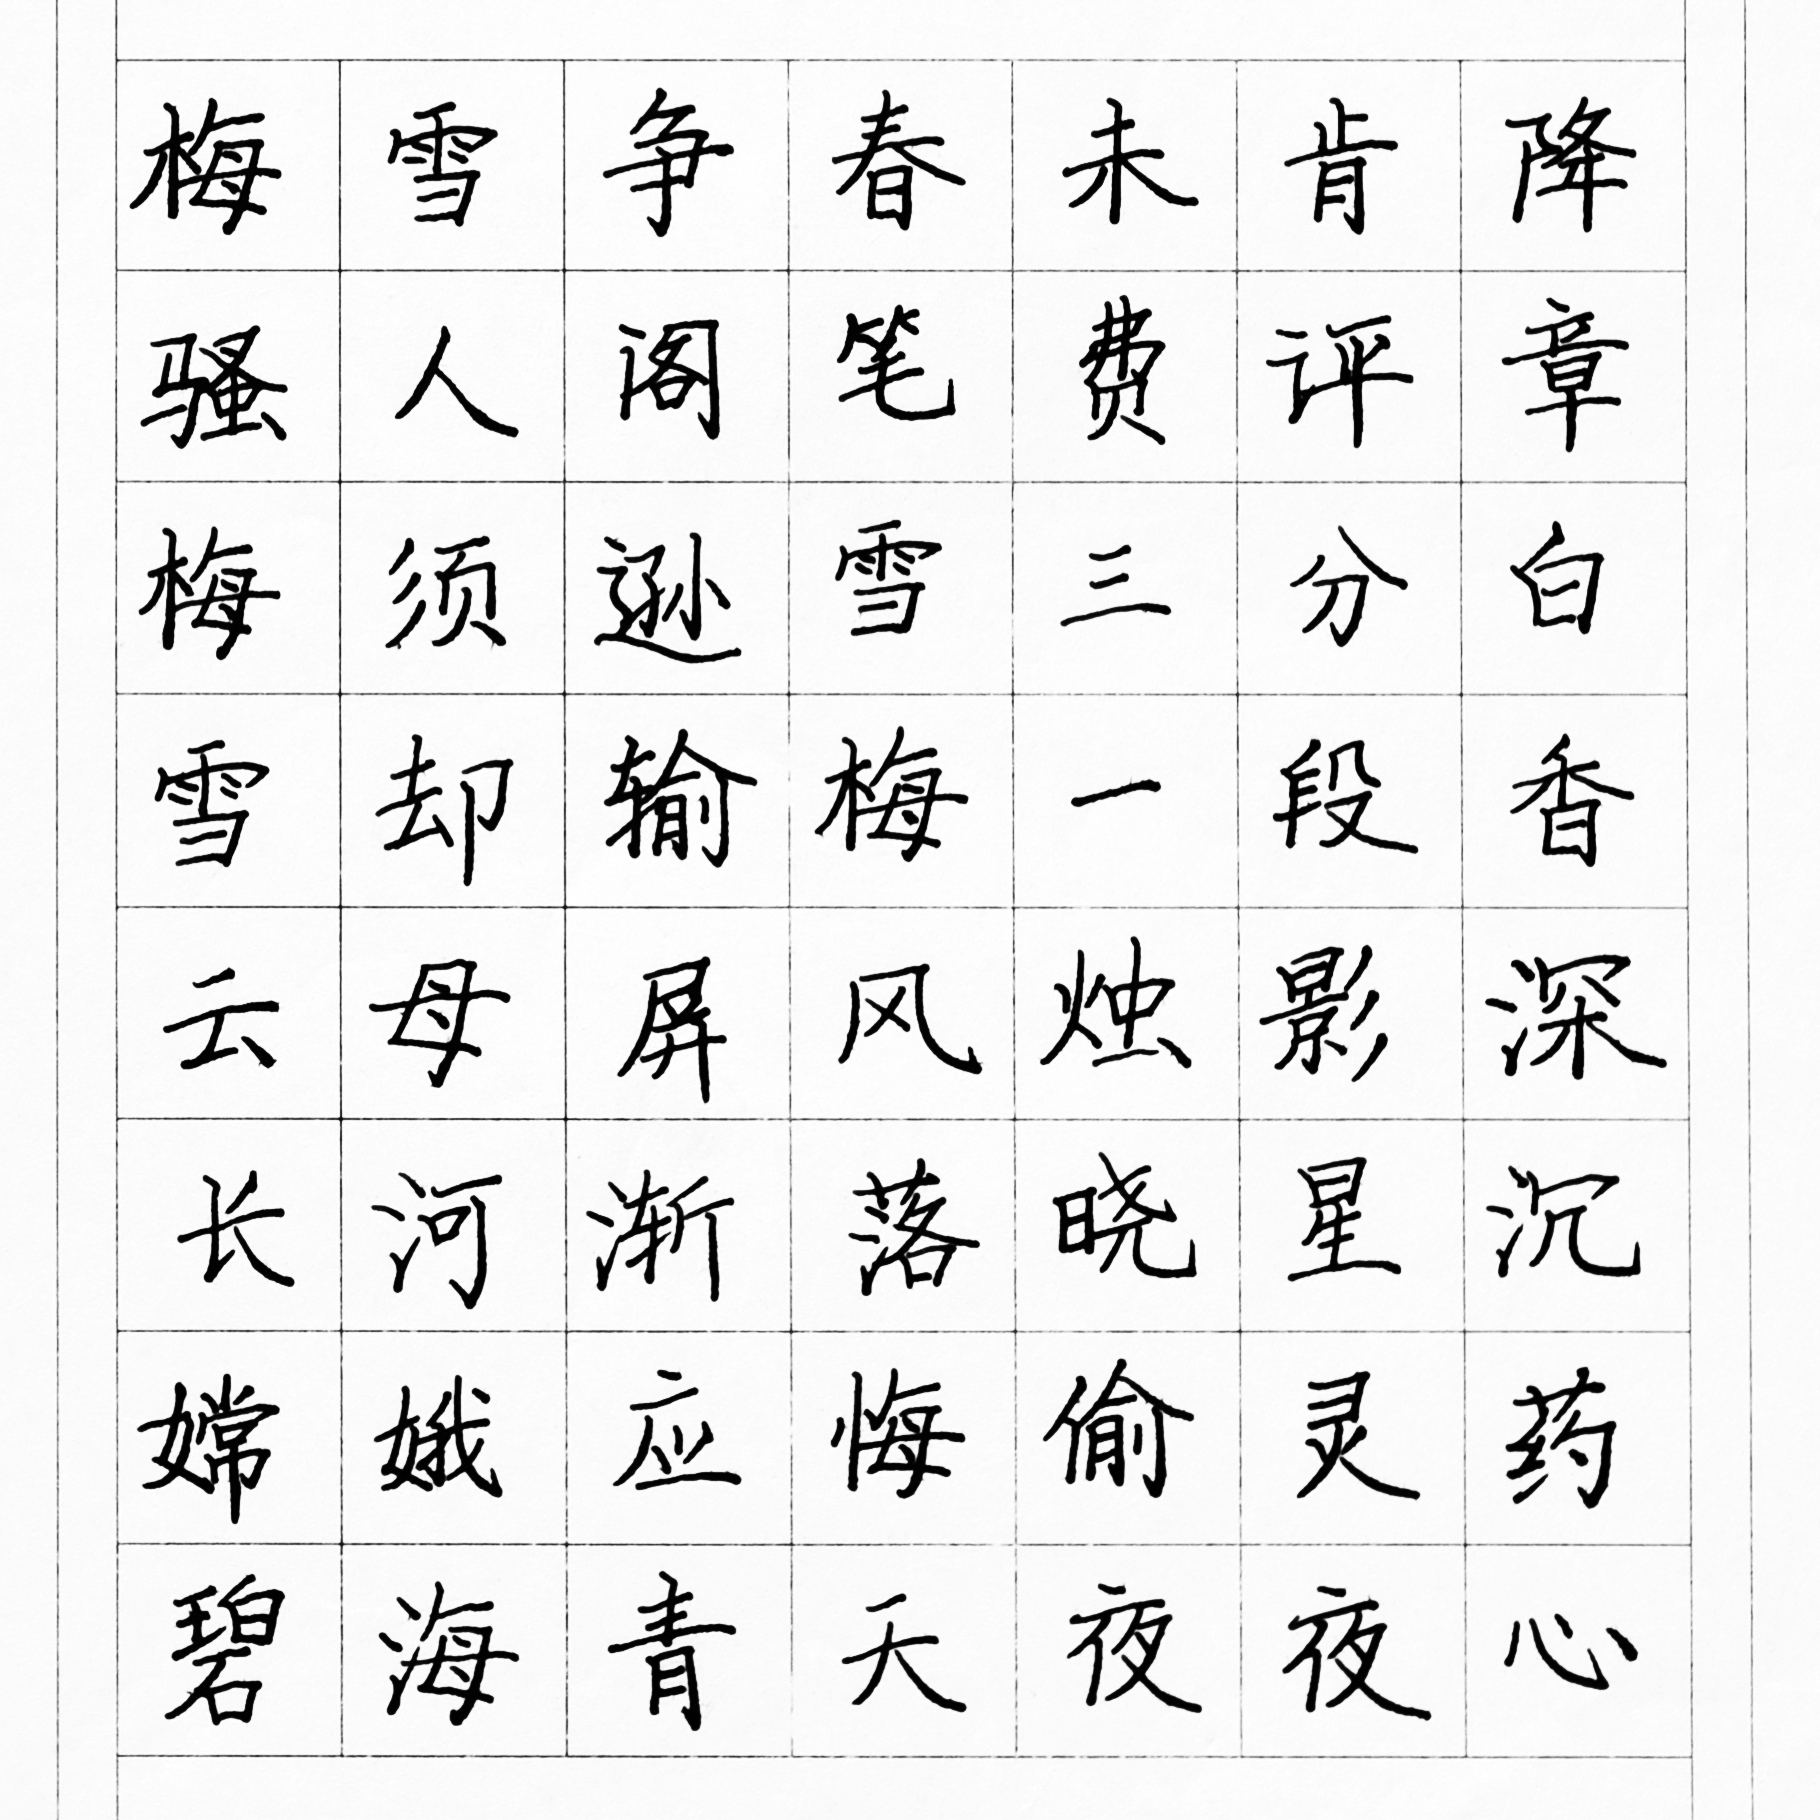 梅雪争春未肯降
骚人阁笔费评章
梅须逊雪三分白
雪却输梅一段香
云母屏风烛影深
长河渐落晓星沉
嫦娥应悔偷灵药
碧海青天夜夜心